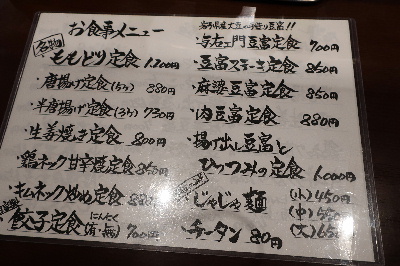 お食事メニュー
名物
ももどり定食 1.100円
・唐揚げ定食(5ヶ) 880円
・半唐揚げ定食(3ヶ) 730円
・生姜焼き定食 800円
・鶏ネック甘辛焼定食 850円
・キムネック炒め定食
餃子定食(にんにく有・無) 700円
岩手県産大豆の手造り豆富!!
・与右ェ門豆富定食 700円
・豆富ステーキ定食 850円
・麻婆豆富定食 850円
・肉豆富定食 880円
・揚げ出し豆富と
ひっつみの定食 1.000円
・じゃじゃ麺 (小)450円
(中)
(大)
・チータン 80円